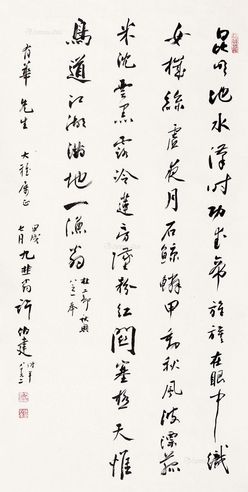 昆明池水漢時功武帝旌旗在眼中織
女機絲虛夜月石鯨鱗甲動秋風波漂菰
米沈雲黑露冷蓮房墜粉紅關塞極天惟
鳥道江湖滿地一漁翁
杜工部秋興
八之一奉
有華先生 大雅屬正
甲戌
七月
九韭翁許伯建
時年
八十又二